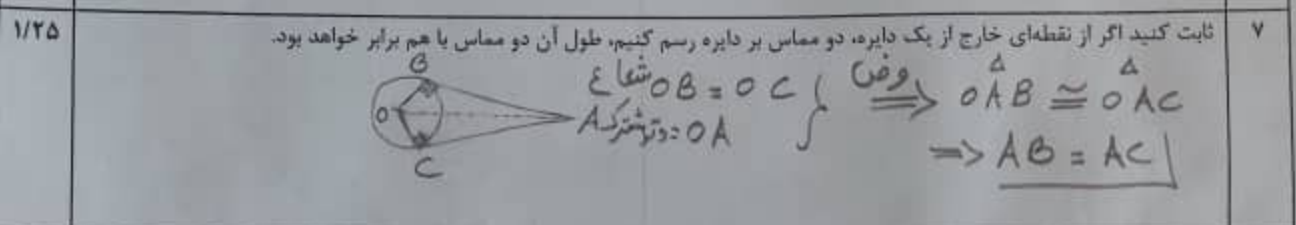 ۷ ثابت کنید اگر از نقطه‌ای خارج از یک دایره، دو مماس بر دایره رسم کنیم، طول آن دو مماس با هم برابر خواهد بود. ۱/۲۵
B
O
C
A
شعاع OB = OC
وتر مشترک = OA
} وض ⟹ OAB ≅ OAC
=> AB = AC